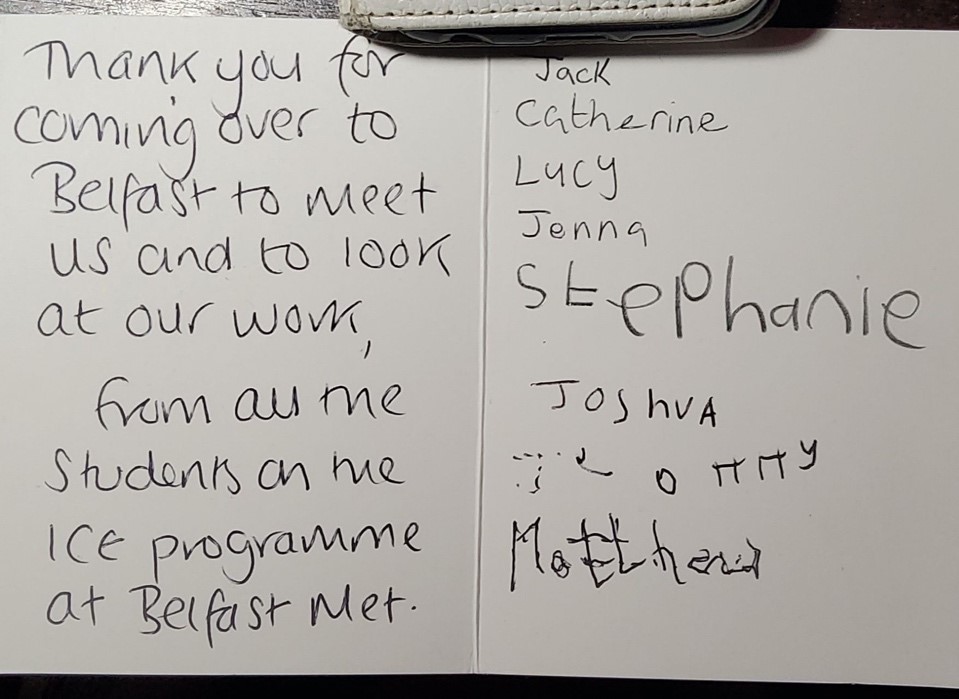 Thank you for
coming over to
Belfast to meet
us and to look
at our work,
from all the
Students on the
ICE programme
at Belfast Met.
Jack
Catherine
Lucy
Jenna
Stephanie
Joshua
Matthew